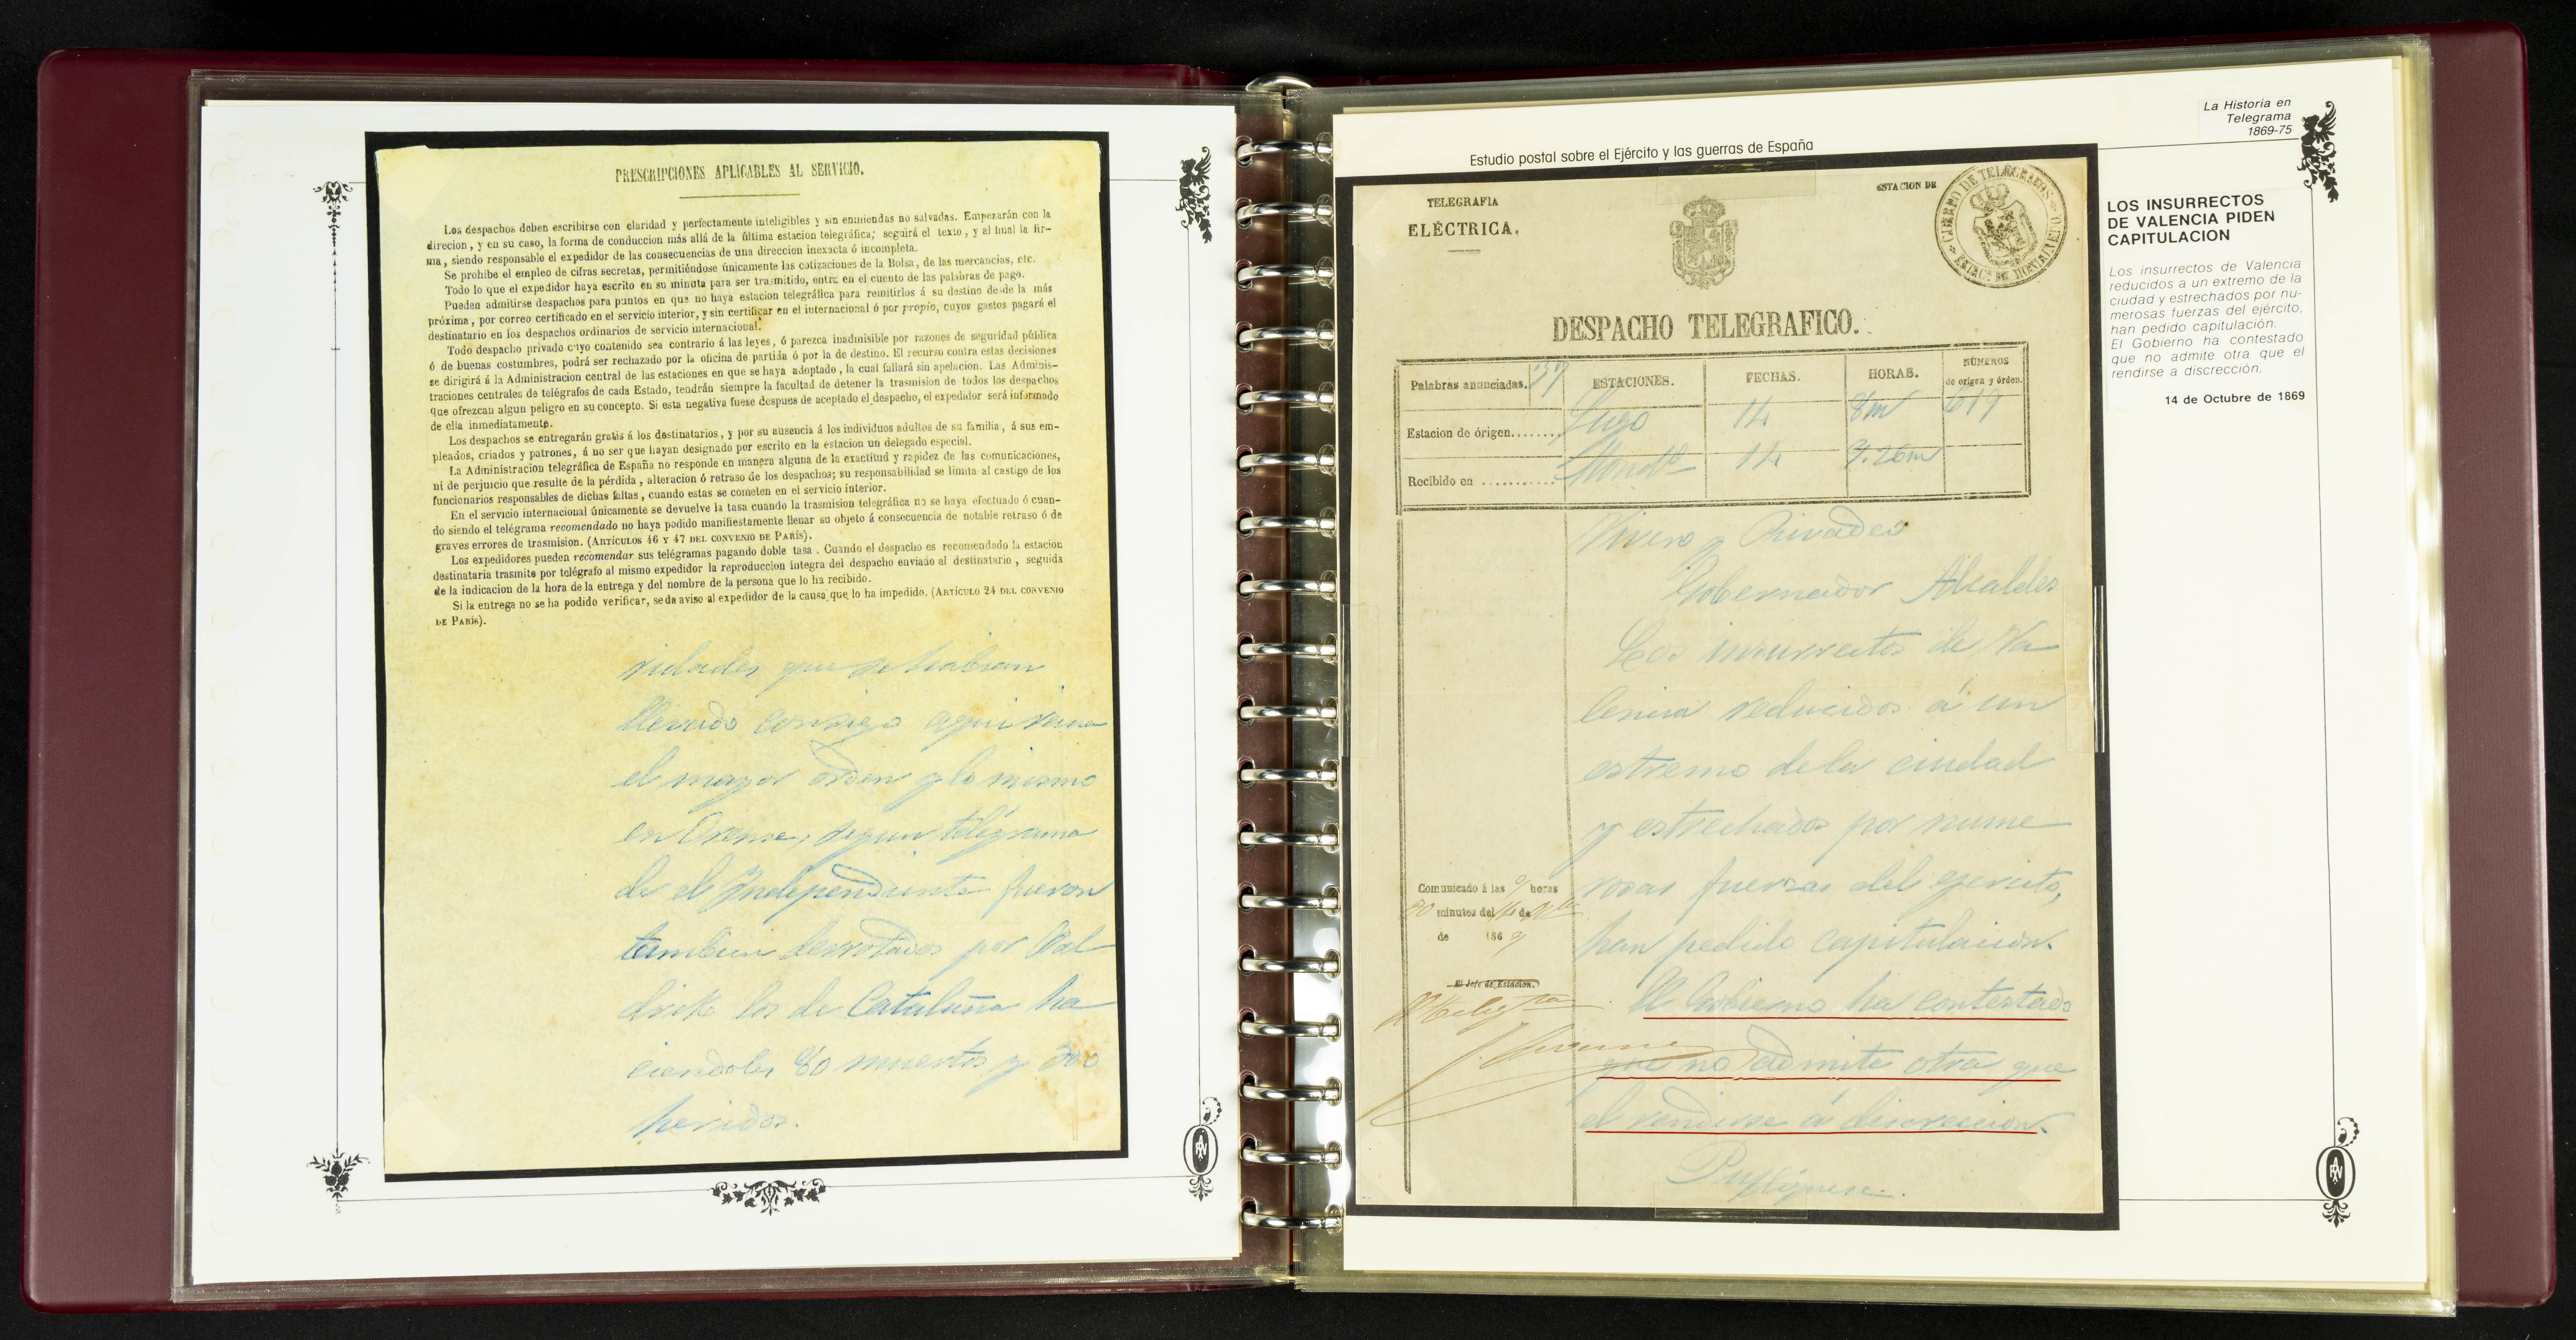 PRESCRIPCIONES APLICABLES AL SERVICIO.
Los despachos deben escribirse con claridad y perfectamente inteligibles y sin enmiendas no salvadas. Empezarán con la
direcion, y en su caso, la forma de conduccion más allá de la última estacion telegráfica; seguirá el texto, y al final la fir-
ma, siendo responsable el expedidor de las consecuencias de una direccion inexacta ó incompleta.
Se prohibe el empleo de cifras secretas, permitiéndose únicamente las cotizaciones de la Bolsa, de las mercancías, etc.
Todo lo que el expedidor haya escrito en su minuta para ser trasmitido, entra en el cuento de las palabras de pago.
Pueden admitirse despachos para puntos en que no haya estacion telegráfica para remitirlos á su destino desde la más
próxima, por correo certificado en el servicio interior, y sin certificar en el internacional ó por propio, cuyos gastos pagará el
destinatario en los despachos ordinarios de servicio internacional.
Todo despacho privado cuyo contenido sea contrario á las leyes, ó parezca inadmisible por razones de seguridad pública
ó de buenas costumbres, podrá ser rechazado por la oficina de partida ó por la de destino. El recurso contra estas decisiones
se dirigirá á la Administracion central de las estaciones en que se haya adoptado, la cual fallará sin apelacion. Las Adminis-
traciones centrales de telégrafos de cada Estado, tendrán siempre la facultad de detener la trasmision de todos los despachos
que ofrezcan algun peligro en su concepto. Si esta negativa fuese despues de aceptado el despacho, el expedidor será informado
de ella inmediatamente.
Los despachos se entregarán gratis á los destinatarios, y por su ausencia á los individuos adultos de su familia, á sus em-
pleados, criados y patrones, á no ser que hayan designado por escrito en la estacion un delegado especial.
La Administracion telegráfica de España no responde en manera alguna de la exactitud y rapidez de las comunicaciones,
ni de perjuicio que resulte de la pérdida, alteracion ó retraso de los despachos; su responsabilidad se limita al castigo de los
funcionarios responsables de dichas faltas, cuando estas se cometen en el servicio interior.
En el servicio internacional únicamente se devuelve la tasa cuando la trasmision telegráfica no se haya efectuado ó cuan-
do siendo el telégrama recomendado no haya podido manifiestamente llenar su objeto á consecuencia de notable retraso ó de
graves errores de trasmision. (ARTÍCULOS 46 Y 47 DEL CONVENIO DE PARÍS).
Los expedidores pueden recomendar sus telégramas pagando doble tasa. Cuando el despacho es recomendado la estacion
destinataria trasmite por telégrafo al mismo expedidor la reproduccion íntegra del despacho enviado al destinatario, seguida
de la indicacion de la hora de la entrega y del nombre de la persona que lo ha recibido.
Si la entrega no se ha podido verificar, se da aviso al expedidor de la causa que lo ha impedido. (ARTÍCULO 24 DEL CONVENIO
DE PARÍS).
vidades que se habian
llevado consigo aqui reina
el mayor orden y lo mismo
en Orense, segun telégrama
de el Independiente fueron
tambien derrotados por Bal
drich los de Cataluña ha
ciendoles 80 muertos y 300
heridos.
La Historia en
Telegrama
1869-75
Estudio postal sobre el Ejército y las guerras de España
TELEGRAFIA
ELÉCTRICA.
ESTACION DE
CUERPO DE TELEGRAFOS
DESPACHO TELEGRAFICO.
Palabras anunciadas. 37 ESTACIONES. FECHAS. HORAS. NÚMEROS
de origen y órden.
Estacion de órigen........ Lugo 14 8m 619
Recibido en ............ Mondo 14 9.26m
Vivero y Rivadeo
Gobernador Alcaldes
Los insurrectos de Va
lencia reducidos á un
estremo de la ciudad
y estrechados por nume
rosas fuerzas del ejercito,
han pedido capitulacion.
El Gobierno ha contestado
que no admite otra que
el rendirse á discrecion.
Comunicado á las 9 horas
30 minutos del 14 de
de 1869
El Jefe de Estacion.
LOS INSURRECTOS
DE VALENCIA PIDEN
CAPITULACION
Los insurrectos de Valencia
reducidos a un extremo de la
ciudad y estrechados por nu-
merosas fuerzas del ejército,
han pedido capitulación.
El Gobierno ha contestado
que no admite otra que el
rendirse a discreción.
14 de Octubre de 1869